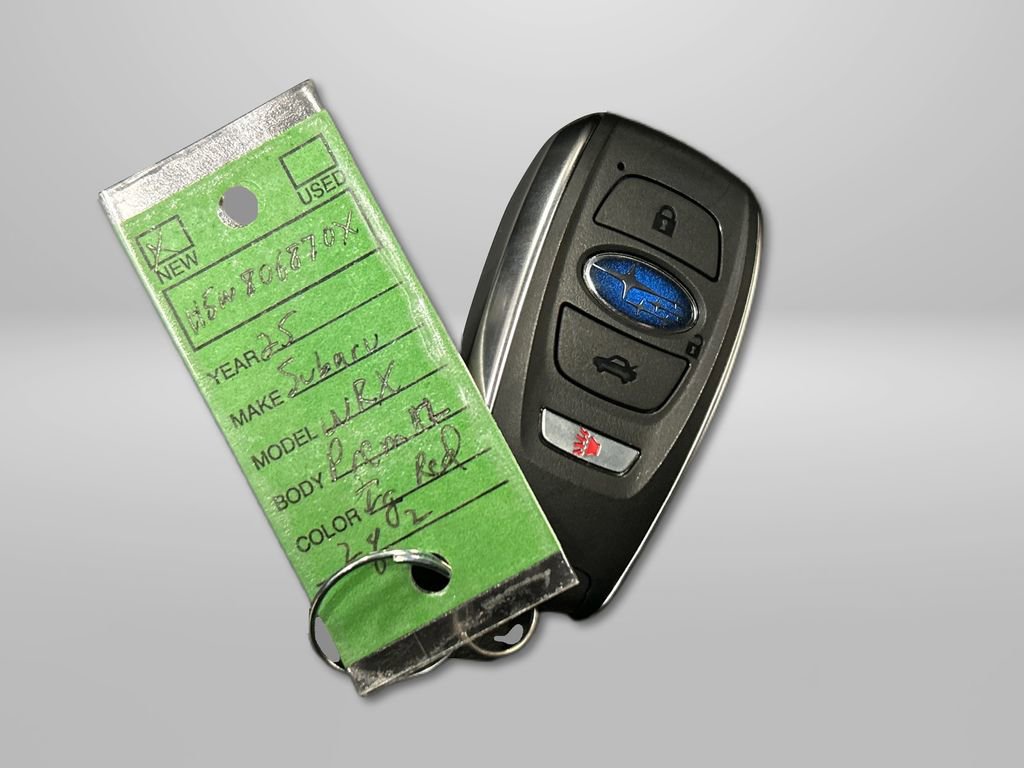 USED
X NEW
WSW806870X
YEAR 25
MAKE Subaru
MODEL WRX
BODY Prem
COLOR Ig Red
282